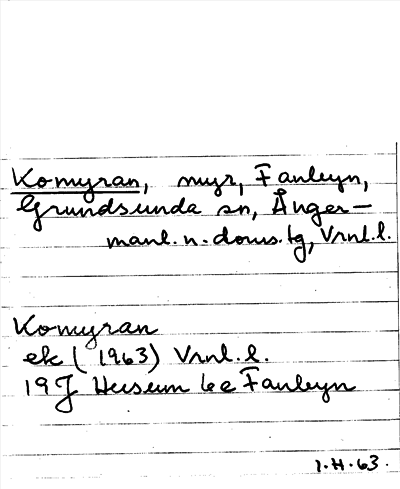 Komyran, myr, Fanbyn,
Grundsunda sn, Ånger-
manl. n. doms. tg, Vrnl. l.
Komyran
ek (1963) Vrnl. l.
19J Husum be Fanbyn
1.H.63.